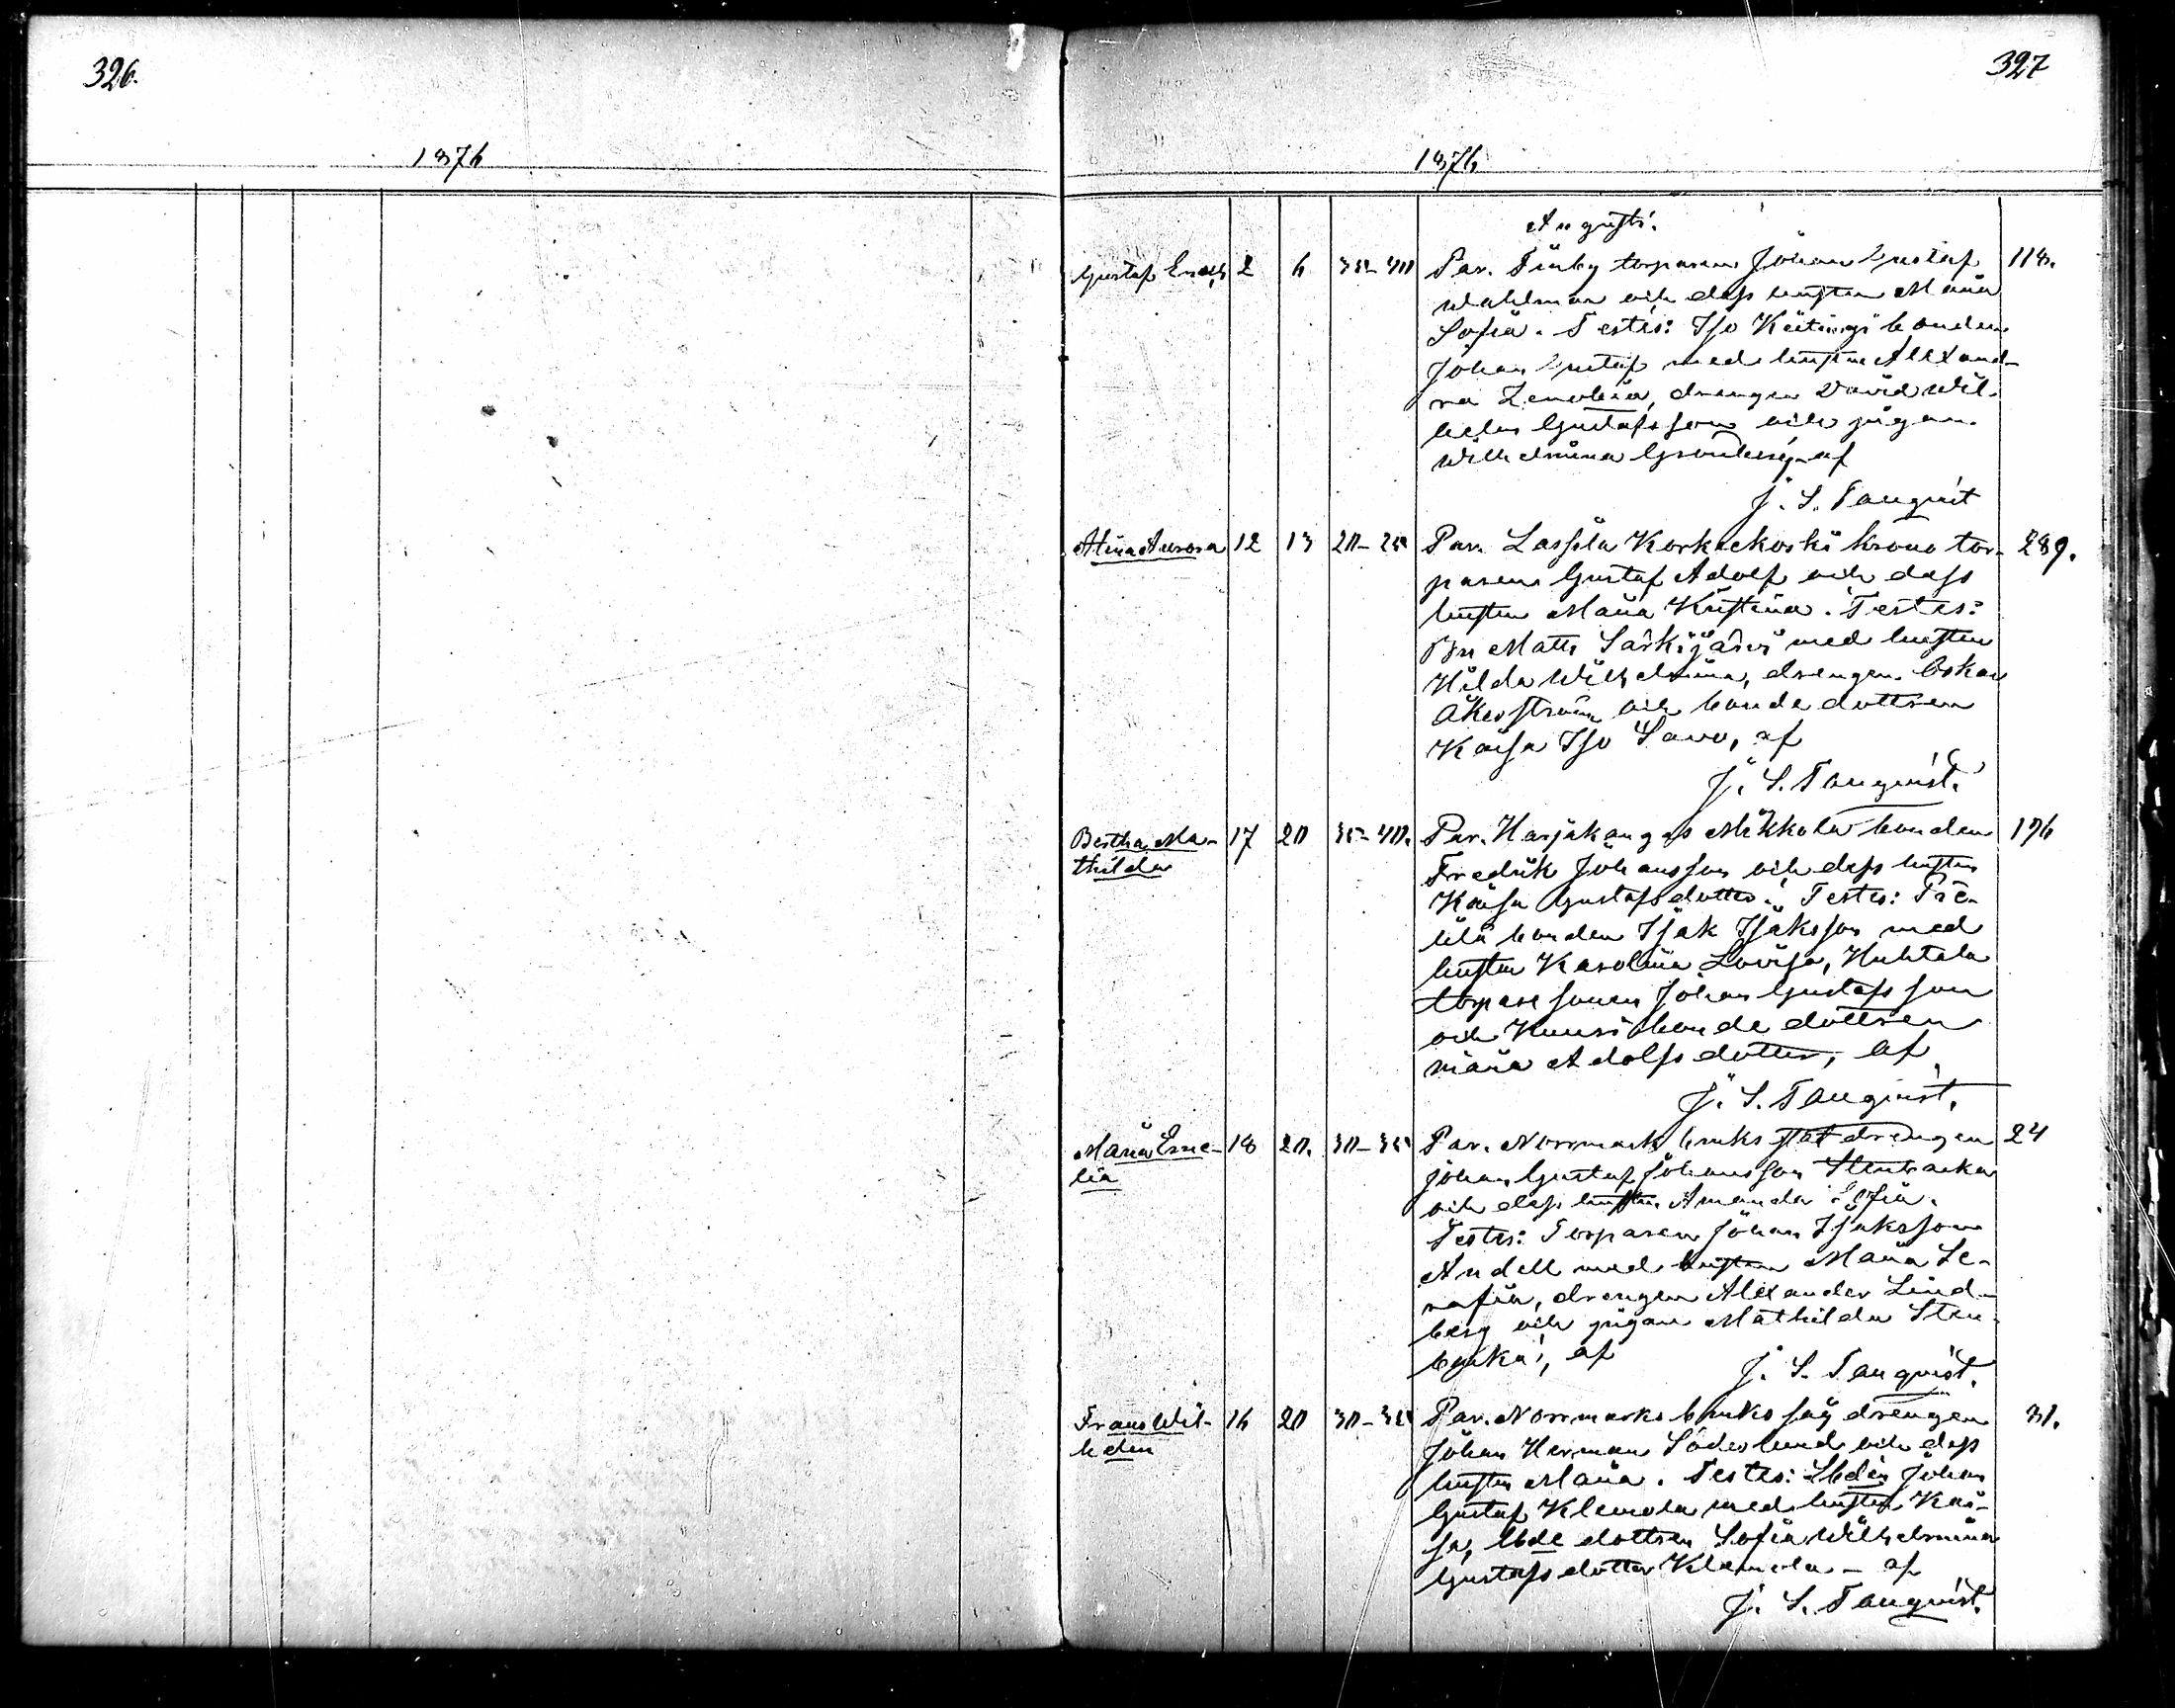 326.
1876
327
1876
Augusti.
Gustaf Enoch 2 6 35-40 Par. Finby torparen Johan Gustaf 118.
Wahlman och dess hustru Maria
Sofia. Testis: Iso Keitingi bonden
Johan Gustaf med hustru Alexand-
ra Zenobia, drengen David Wil-
helm Gustafsson och pigan
Wilhelmina Grönberg - af
J. S. Tanqvist
Alina Aurora 12 13 20-25 Par. Lassila Korkeekoski krono tor- 289.
paren Gustaf Adolf och dess
hustru Maria Kristina. Testes:
Matts Särkijärvi med hustru
Hilda Wilhelmina, drengen Oskar
Åkerström och bonde dottren
Kaisa Iso Savo, af
J. S. Tanqvist.
Bertha Ma- 17 20 35-40. Par. Harjakangas Mikkola bonden 196
thilda
Fredrik Johansson och dess hustru
Kaisa Gustafsdotter. Testes:
bonden Isak Isaksson med
hustru Karolina Lovisa, Huhtala
torpare sonen Johan Gustafsson
och Kuusi bonde dottren
Maria Adolfsdotter, af
J. S. Tanqvist.
Maria Eme- 18 20. 30-35 Par. Norrmark bruks stat drengen 24
lia
Johan Gustaf Johansson Stenbacka
och dess hustru Amanda Sofia.
Testes: Torparen Johan Isaksson
Andell med hustru Maria Se-
rafia, drengen Alexander Lind-
berg och pigan Mathilda Sten-
backa, af
J. S. Tanqvist.
Frans Wil- 16 20 30-35 Par. Norrmarks bruks såg drengen 31.
helm
Johan Herman Söderlund och dess
hustru Maria. Testes: Johan
Gustaf Klemola med hustru Kai-
sa, dottren Sofia Wilhelmina
Gustafsdotter Klemola - af
J. S. Tanqvist.